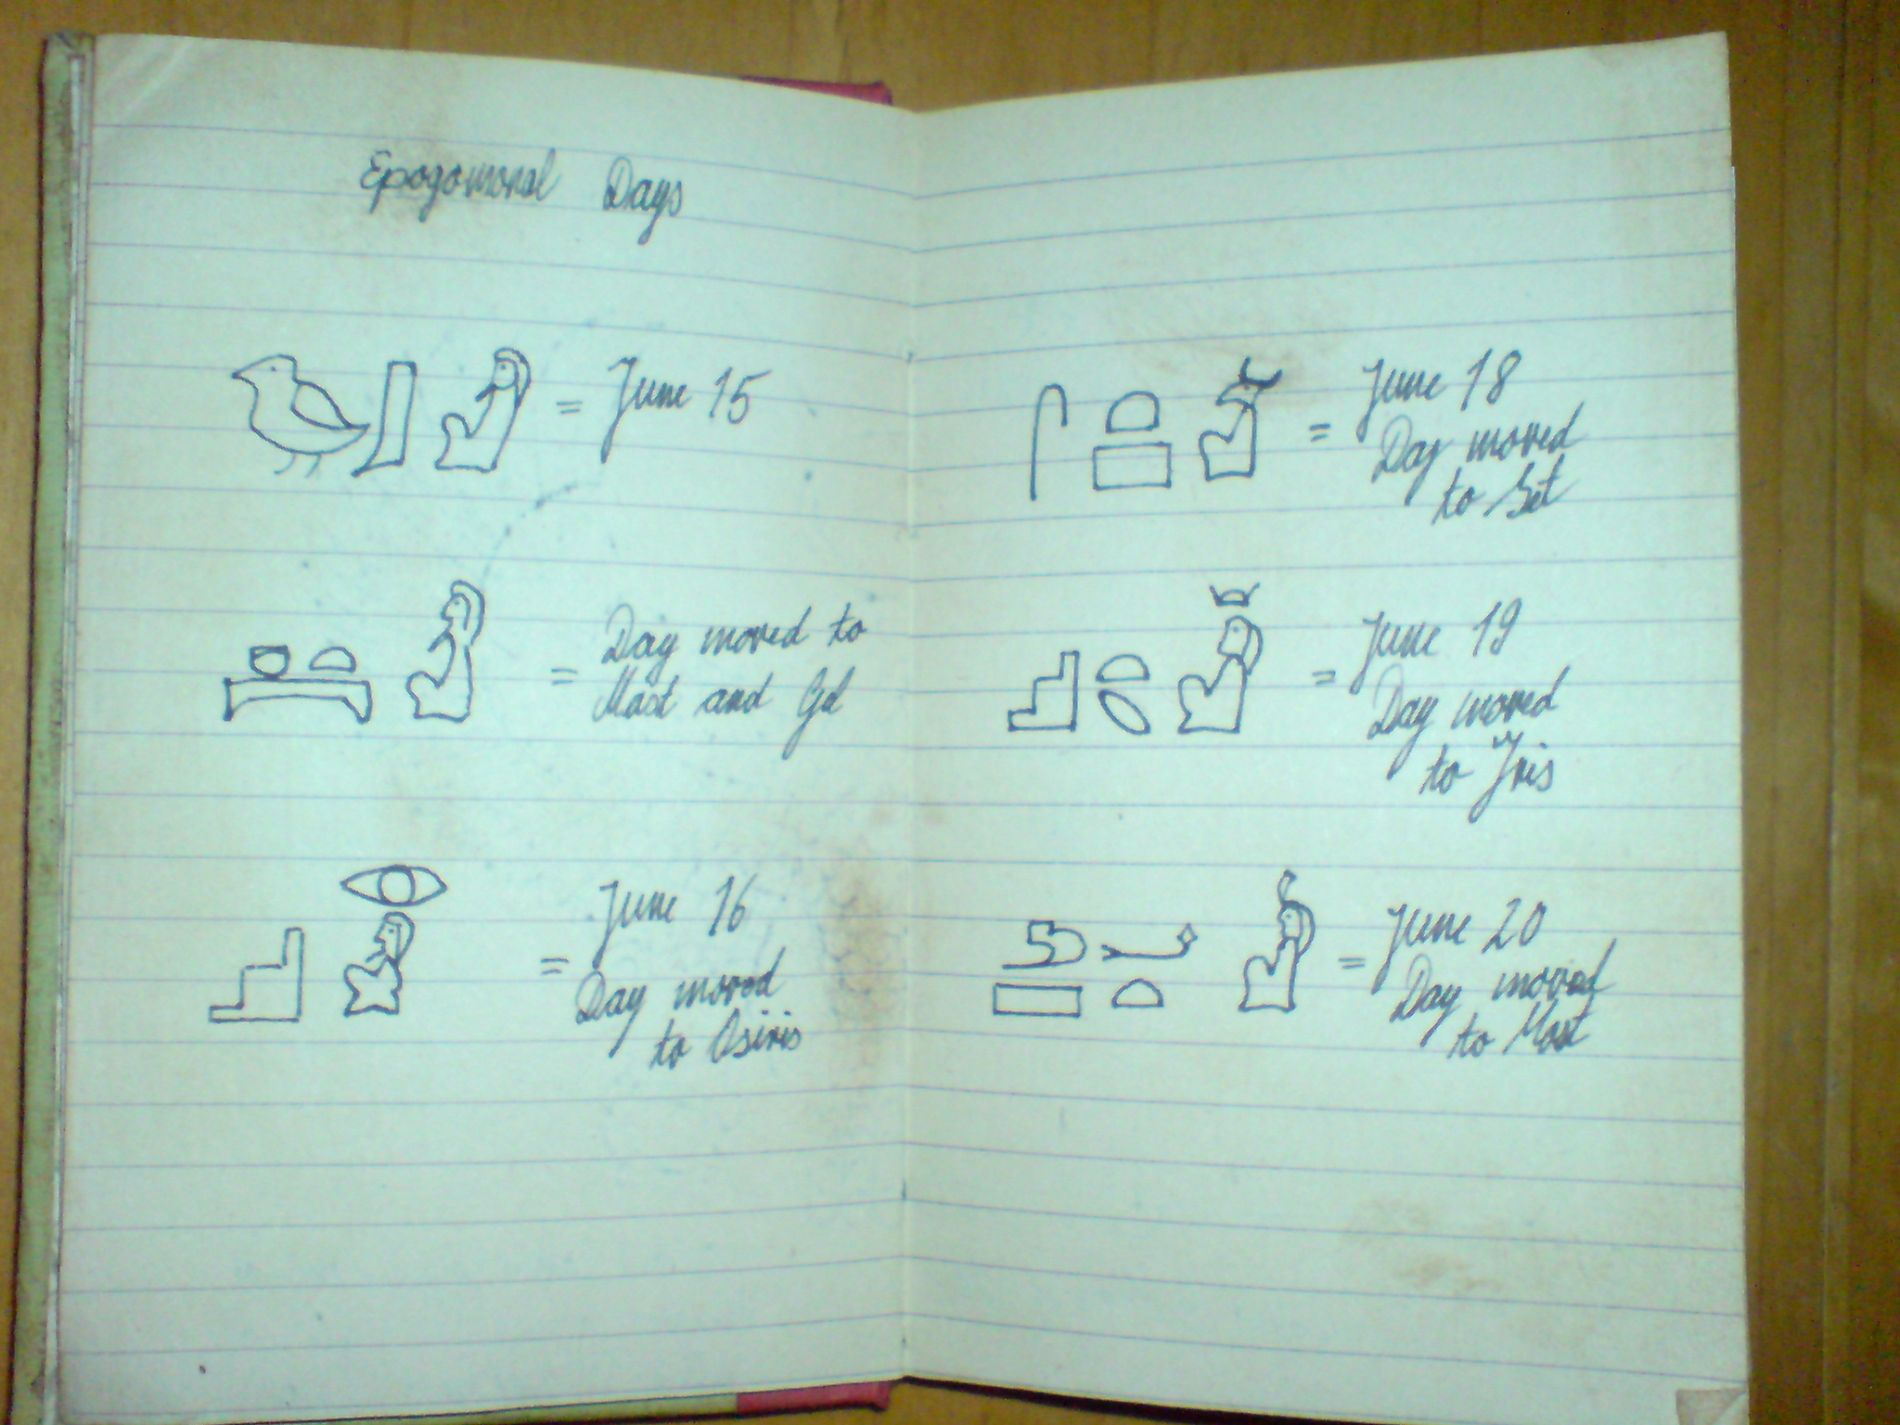 Epogomoral Days
= June 15
= Day moved to
Maat and Geb
= June 16
Day moved
to Osiris
= June 18
Day moved
to Set
= June 19
Day moved
to Isis
= June 20
Day moved
to Maat